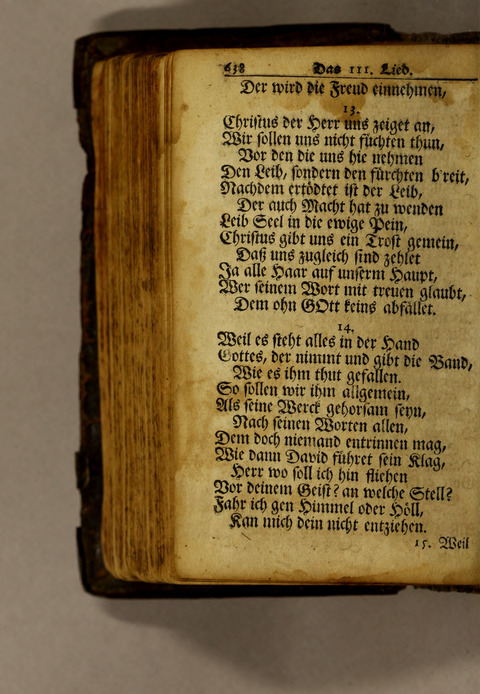 638 Das III. Lied.
Der wird die Freud einnehmen,
13.
Christus der Herr uns zeiget an,
Wir sollen uns nicht füchten thun,
Vor den die uns hie nehmen
Den Leib, sondern den fürchten breit,
Nachdem ertödtet ist der Leib,
Der auch Macht hat zu wenden
Leib Seel in die ewige Pein,
Christus gibt uns ein Trost gemein,
Daß uns zugleich sind zehlet
Ja alle Haar auf unserm Haupt,
Wer seinem Wort mit treuen glaubt,
Dem ohn GOtt keins abfället.
14.
Weil es steht alles in der Hand
Gottes, der nimmt und gibt die Band,
Wie es ihm thut gefallen.
So sollen wir ihm allgemein,
Als seine Werck gehorsam seyn,
Nach seinen Worten allen,
Dem doch niemand entrinnen mag,
Wie dann David führet sein Klag,
Herr wo soll ich hin fliehen
Vor deinem Geist? an welche Stell?
Fahr ich gen Himmel oder Höll,
Kan mich dein nicht entziehen.
15. Weil